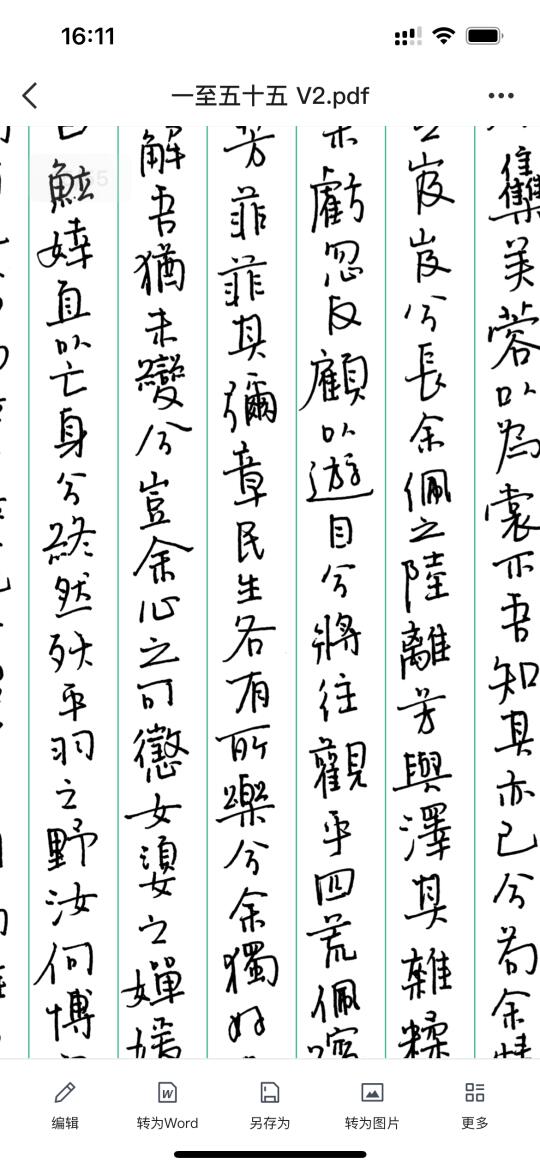 16:11
一至五十五 V2.pdf
雧芙蓉以為裳不吾知其亦已兮苟余情
岌岌兮長余佩之陸離芳與澤其雜糅
虧忽反顧以遊目兮將往觀乎四荒佩
芳菲菲其彌章民生各有所樂兮余獨好
解吾猶未變兮豈余心之可懲女嬃之嬋媛
曰鯀婞直以亡身兮終然殀乎羽之野汝何博
编辑
转为Word
另存为
转为图片
更多